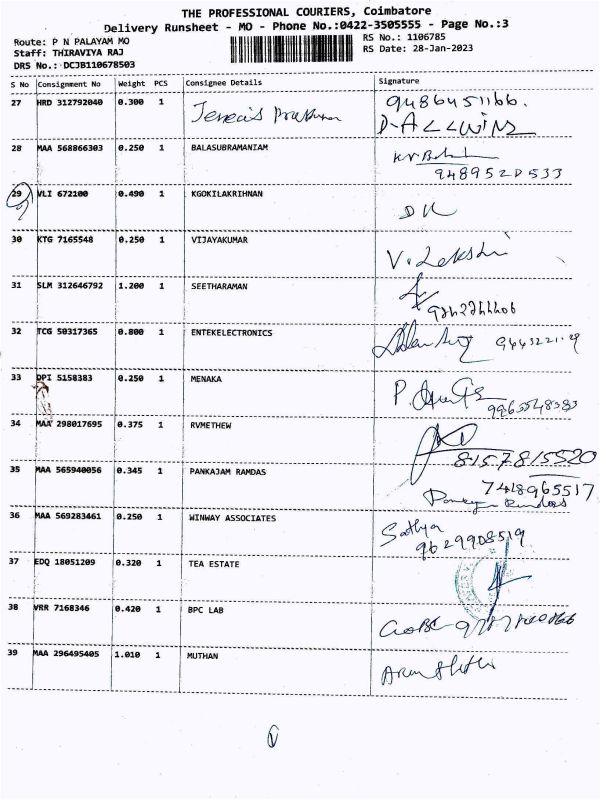 THE PROFESSIONAL COURIERS, Coimbatore
Delivery Runsheet - MO - Phone No.:0422-3505555 - Page No.:3
Route: P N PALAYAM MO
RS No.: 1106785
Staff: THIRAVIYA RAJ
RS Date: 28-Jan-2023
DRS No.: DCJB110678503
S No Consignment No Weight PCS Consignee Details Signature
27 HRD 312792040 0.300 1 9486451166.
D-ALLWINS
28 MAA 568866303 0.250 1 BALASUBRAMANIAM
9489520533
29 VLI 672100 0.490 1 KGOKILAKRIHNAN
30 KTG 7165548 0.250 1 VIJAYAKUMAR V. Lekshi
31 SLM 312646792 1.200 1 SEETHARAMAN
32 TCG 50317365 0.800 1 ENTEKELECTRONICS
33 DPI 5158383 0.250 1 MENAKA
34 MAA 298017695 0.375 1 RVMETHEW
8157815520
35 MAA 565940056 0.345 1 PANKAJAM RAMDAS 7418965517
36 MAA 569283461 0.250 1 WINWAY ASSOCIATES Sathya
9629908519
37 EDQ 18051209 0.320 1 TEA ESTATE
38 VRR 7168346 0.420 1 BPC LAB
39 MAA 296495405 1.010 1 MUTHAN